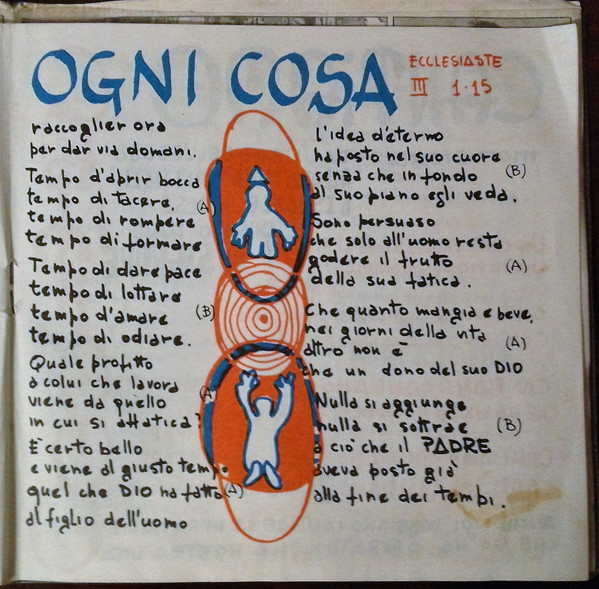 OGNI COSA
ECCLESIASTE
III 1-15
raccoglier ora
per dar via domani.
Tempo d'aprir bocca
tempo di tacere,
tempo di rompere (A)
tempo di formare
Tempo di dare pace
tempo di lottare
tempo d'amare (B)
tempo di odiare.
Quale profitto
a colui che lavora
viene da quello (A)
in cui si affatica?
E' certo bello
e viene al giusto tempo
quel che DIO ha fatto (A)
al figlio dell'uomo
l'idea d'eterno
ha posto nel suo cuore
senza che in fondo (B)
al suo piano egli veda.
Sono persuaso
che solo all'uomo resta
godere il frutto (A)
della sua fatica.
Che quanto mangia e beve,
nei giorni della vita
altro non è (A)
che un dono del suo DIO
Nulla si aggiunge
nulla si sottrae (B)
a ciò che il PADRE
aveva posto già
alla fine dei tempi.